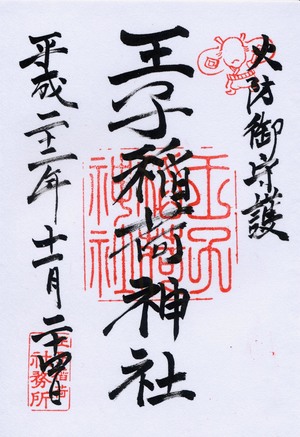 火防御守護
王子稲荷神社
平成二十二年十一月二十四日
王子稲荷神社
王子稲荷
社務所